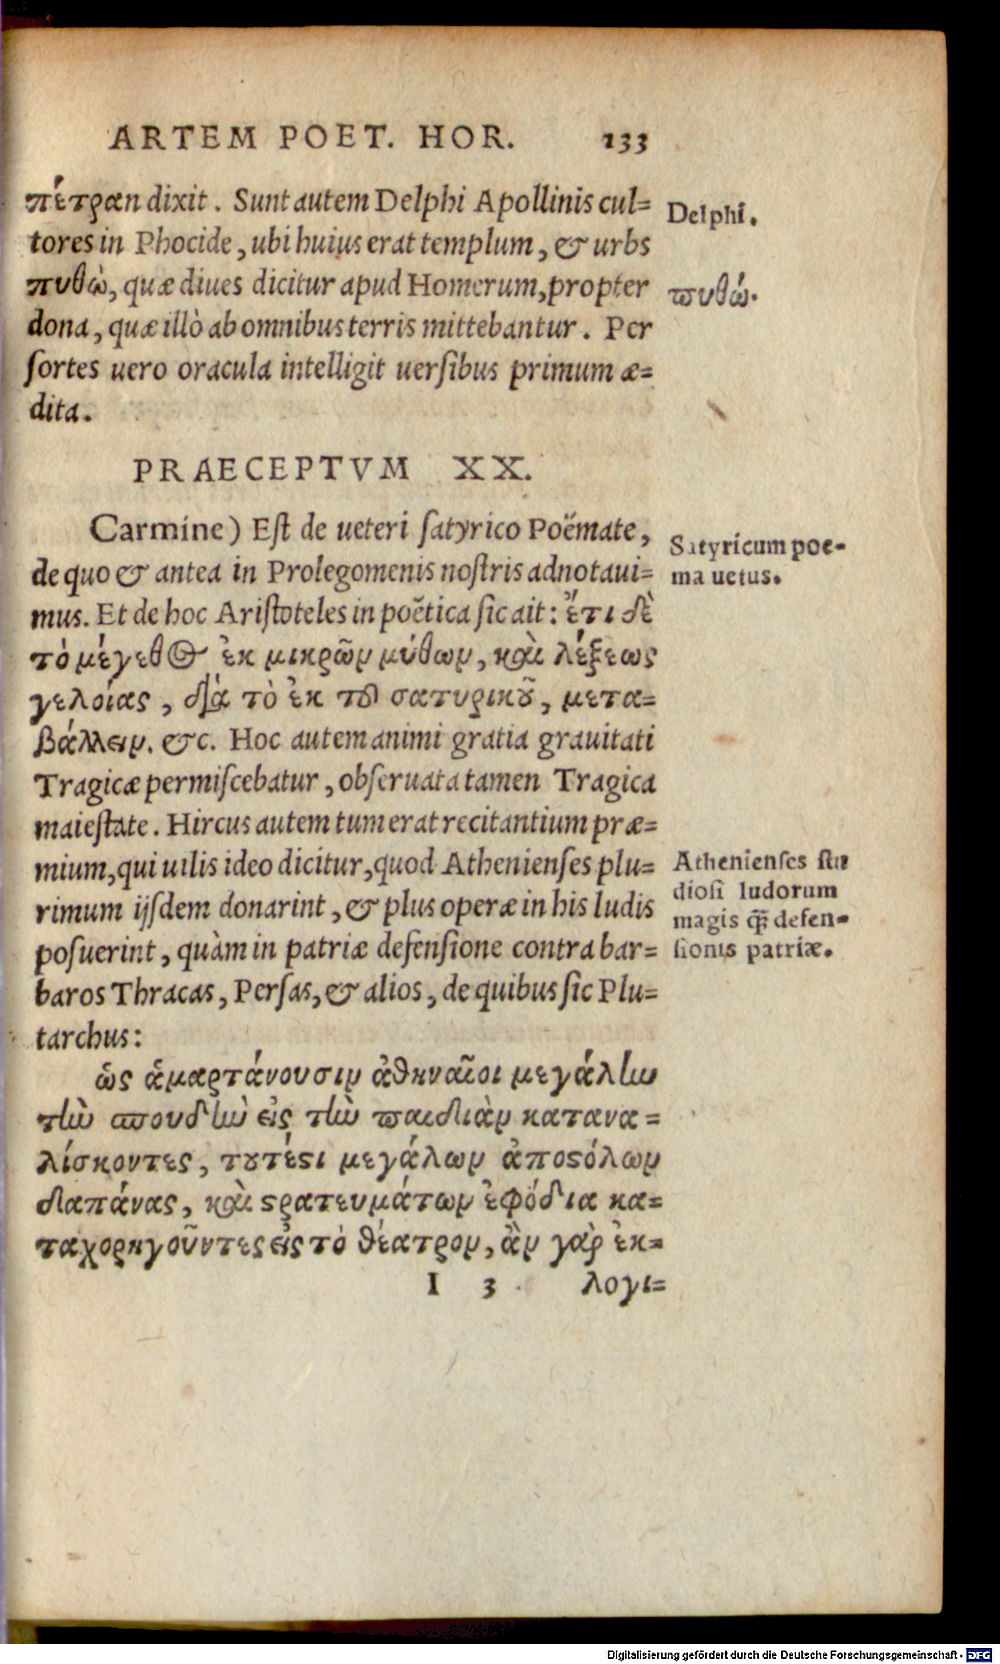 ARTEM POET. HOR. 133
πέτραn dixit. Sunt autem Delphi Apollinis cul=
tores in Phocide, ubi huius erat templum, & urbs
πυθὼ, quæ diues dicitur apud Homerum, propter
dona, quæ illò ab omnibus terris mittebantur. Per
ſortes uero oracula intelligit uerſibus primum æ=
dita.
Delphi.
πυθώ.
PRAECEPTVM XX.
Carmine) Eſt de ueteri ſatyrico Poëmate,
de quo & antea in Prolegomenis noſtris adnotaui=
mus. Et de hoc Ariſtoteles in poëtica ſic ait: ἔτι δὲ
τὸ μέγεθος ἐκ μικρῶν μύθων, καὶ λέξεως
γελοίας, διὰ τὸ ἐκ τοῦ σατυρικοῦ, μετα=
βάλλειν. &c. Hoc autem animi gratia grauitati
Tragicæ permiſcebatur, obſeruata tamen Tragica
maieſtate. Hircus autem tum erat recitantium præ=
mium, qui uilis ideo dicitur, quod Athenienſes plu=
rimum ijſdem donarint, & plus operæ in his ludis
poſuerint, quàm in patriæ defenſione contra bar=
baros Thracas, Perſas, & alios, de quibus ſic Plu=
tarchus:
Satyricum poe=
ma uetus.
Athenienſes ſtu
dioſi ludorum
magis q̃ defen=
ſionis patriæ.
ὡς ἁμαρτάνουσιν ἀθηναῖοι μεγάλην
τὴν σπουδὴν εἰς τὴν παιδιὰν κατανα=
λίσκοντες, τουτέστι μεγάλων ἀποστόλων
δαπάνας, καὶ στρατευμάτων ἐφόδια κα=
ταχορηγοῦντες εἰς τὸ θέατρον, ἂν γὰρ ἐκ=
I 3 λογι=
Digitalisierung gefördert durch die Deutsche Forschungsgemeinschaft - DFG